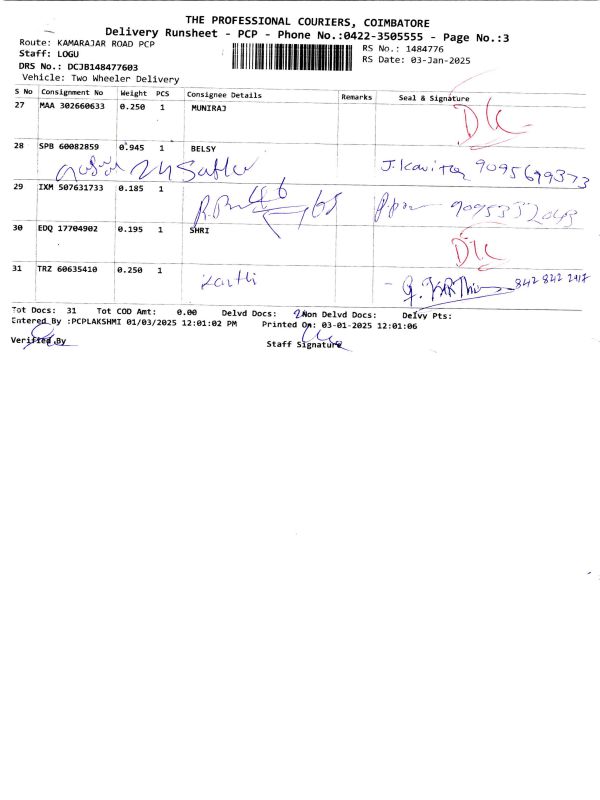 THE PROFESSIONAL COURIERS, COIMBATORE
Delivery Runsheet - PCP - Phone No.:0422-3505555 - Page No.:3
Route: KAMARAJAR ROAD PCP
RS No.: 1484776
Staff: LOGU
RS Date: 03-Jan-2025
DRS No.: DCJB148477603
Vehicle: Two Wheeler Delivery
S No Consignment No Weight PCS Consignee Details Remarks Seal & Signature
27 MAA 302660633 0.250 1 MUNIRAJ
28 SPB 60082859 0.945 1 BELSY
J. Kavitha 9095699373
29 IXM 507631733 0.185 1
30 EDQ 17704902 0.195 1 SHRI
31 TRZ 60635410 0.250 1 Karthi G. KARThi 842 842 2417
Tot Docs: 31 Tot COD Amt: 0.00 Delvd Docs: Non Delvd Docs: Delvy Pts:
Entered By :PCPLAKSHMI 01/03/2025 12:01:02 PM Printed On: 03-01-2025 12:01:06
Verified By
Staff Signature